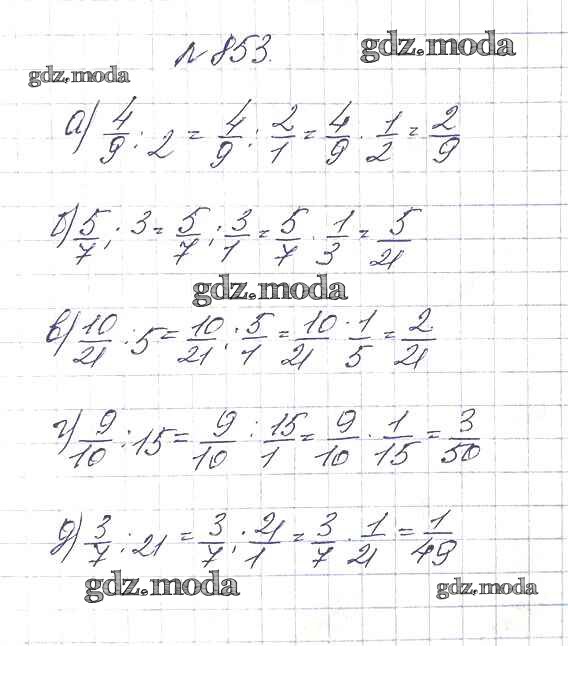 №853.
gdz.moda
gdz.moda
а) 4/9 : 2 = 4/9 : 2/1 = 4/9 · 1/2 = 2/9
б) 5/7 : 3 = 5/7 : 3/1 = 5/7 · 1/3 = 5/21
gdz.moda
в) 10/21 : 5 = 10/21 : 5/1 = 10/21 · 1/5 = 2/21
г) 9/10 : 15 = 9/10 : 15/1 = 9/10 · 1/15 = 3/50
д) 3/7 : 21 = 3/7 : 21/1 = 3/7 · 1/21 = 1/49
gdz.moda
gdz.moda